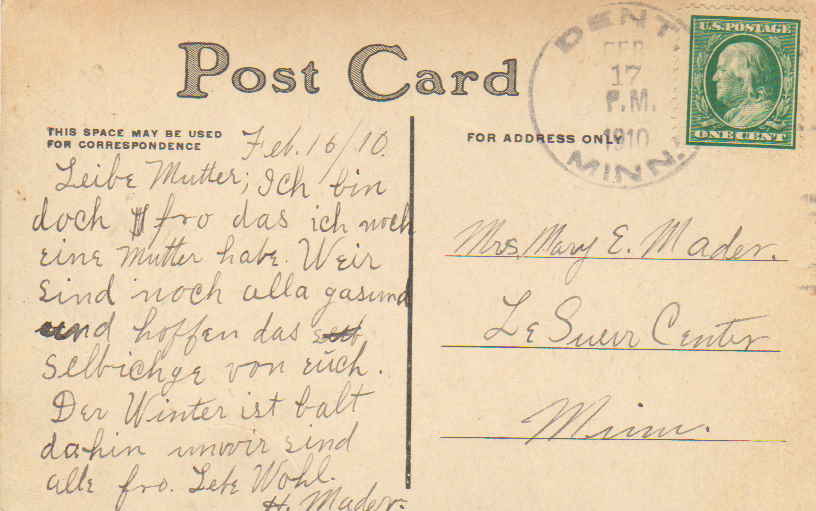 Post Card
THIS SPACE MAY BE USED
FOR CORRESPONDENCE
FOR ADDRESS ONLY
DENT.
FEB
17
P.M.
1910
MINN.
U.S. POSTAGE
ONE CENT
Feb. 16/10.
Leibe Mutter; Ich bin
doch fro das ich noch
eine Mutter habe. Weir
sind noch alla gasund
und hoffen das
selbichge von euch.
Der Winter ist balt
dahin unwir sind
alle fro. Lebe Wohl.
H. Mader.
Mrs. Mary E. Mader.
Le Sueur Center
Minn.